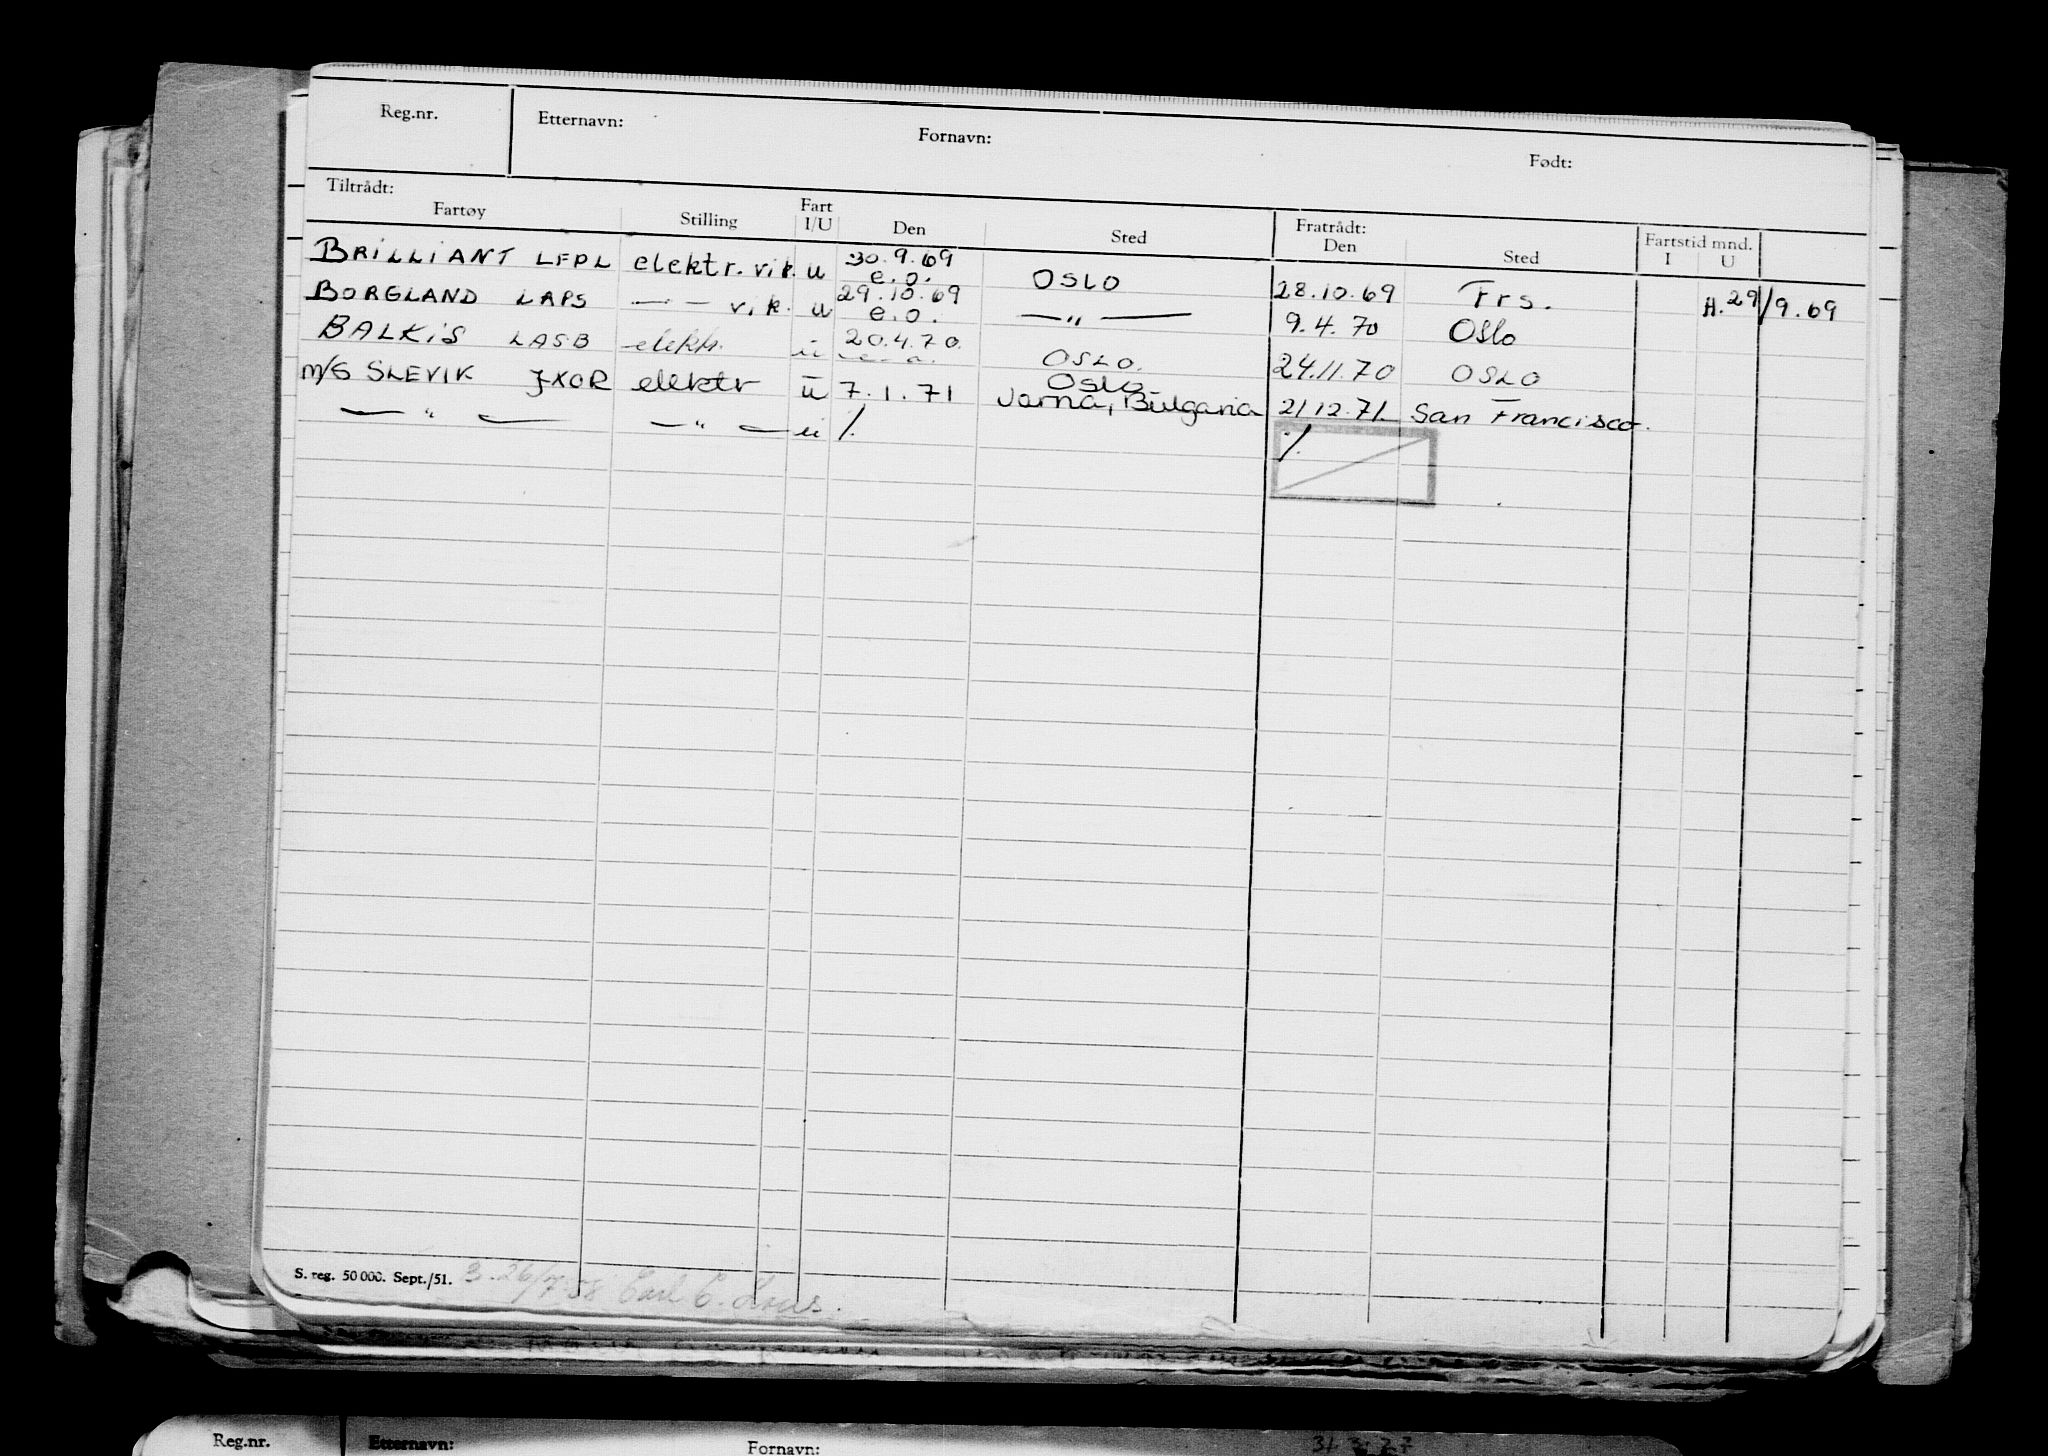 Reg.nr. Etternavn: Fornavn: Født:
Tiltrådt: Fratrådt:
Fartøy Stilling Fart I/U Den Sted Den Sted Fartstid mnd. I U
BRILLIANT LFPL elektr. vik. u 30.9.69 e.o. OSLO 28.10.69 Frs. H. 29/9.69
BORGLAND LAPS — — vik. u 29.10.69 e.o. —"— 9.4.70 Oslo
BALKIS LASB elektr. u 20.4.70. OSLO. 24.11.70 OSLO
M/S SLEVIK JXOR elektr u 7.1.71 Oslo
Varna, Bulgaria 21/12.71 San Francisco.
— " — — " — u /. /.
S. reg. 50 000. Sept./51. 3. 26/7-58 Earl E.
Reg.nr. Etternavn: Fornavn: